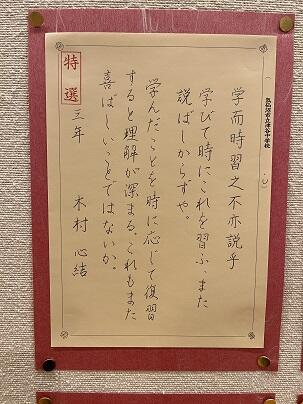 学而時習之不亦説乎
学びて時にこれを習ふ、また
説ばしからずや。
学んだことを時に応じて復習
すると理解が深まる。これもまた
喜ばしいことではないか。
三年 木村 心結
特選